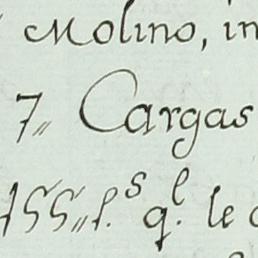 Molino, in
7,, Cargas
155,, l.s q.l le